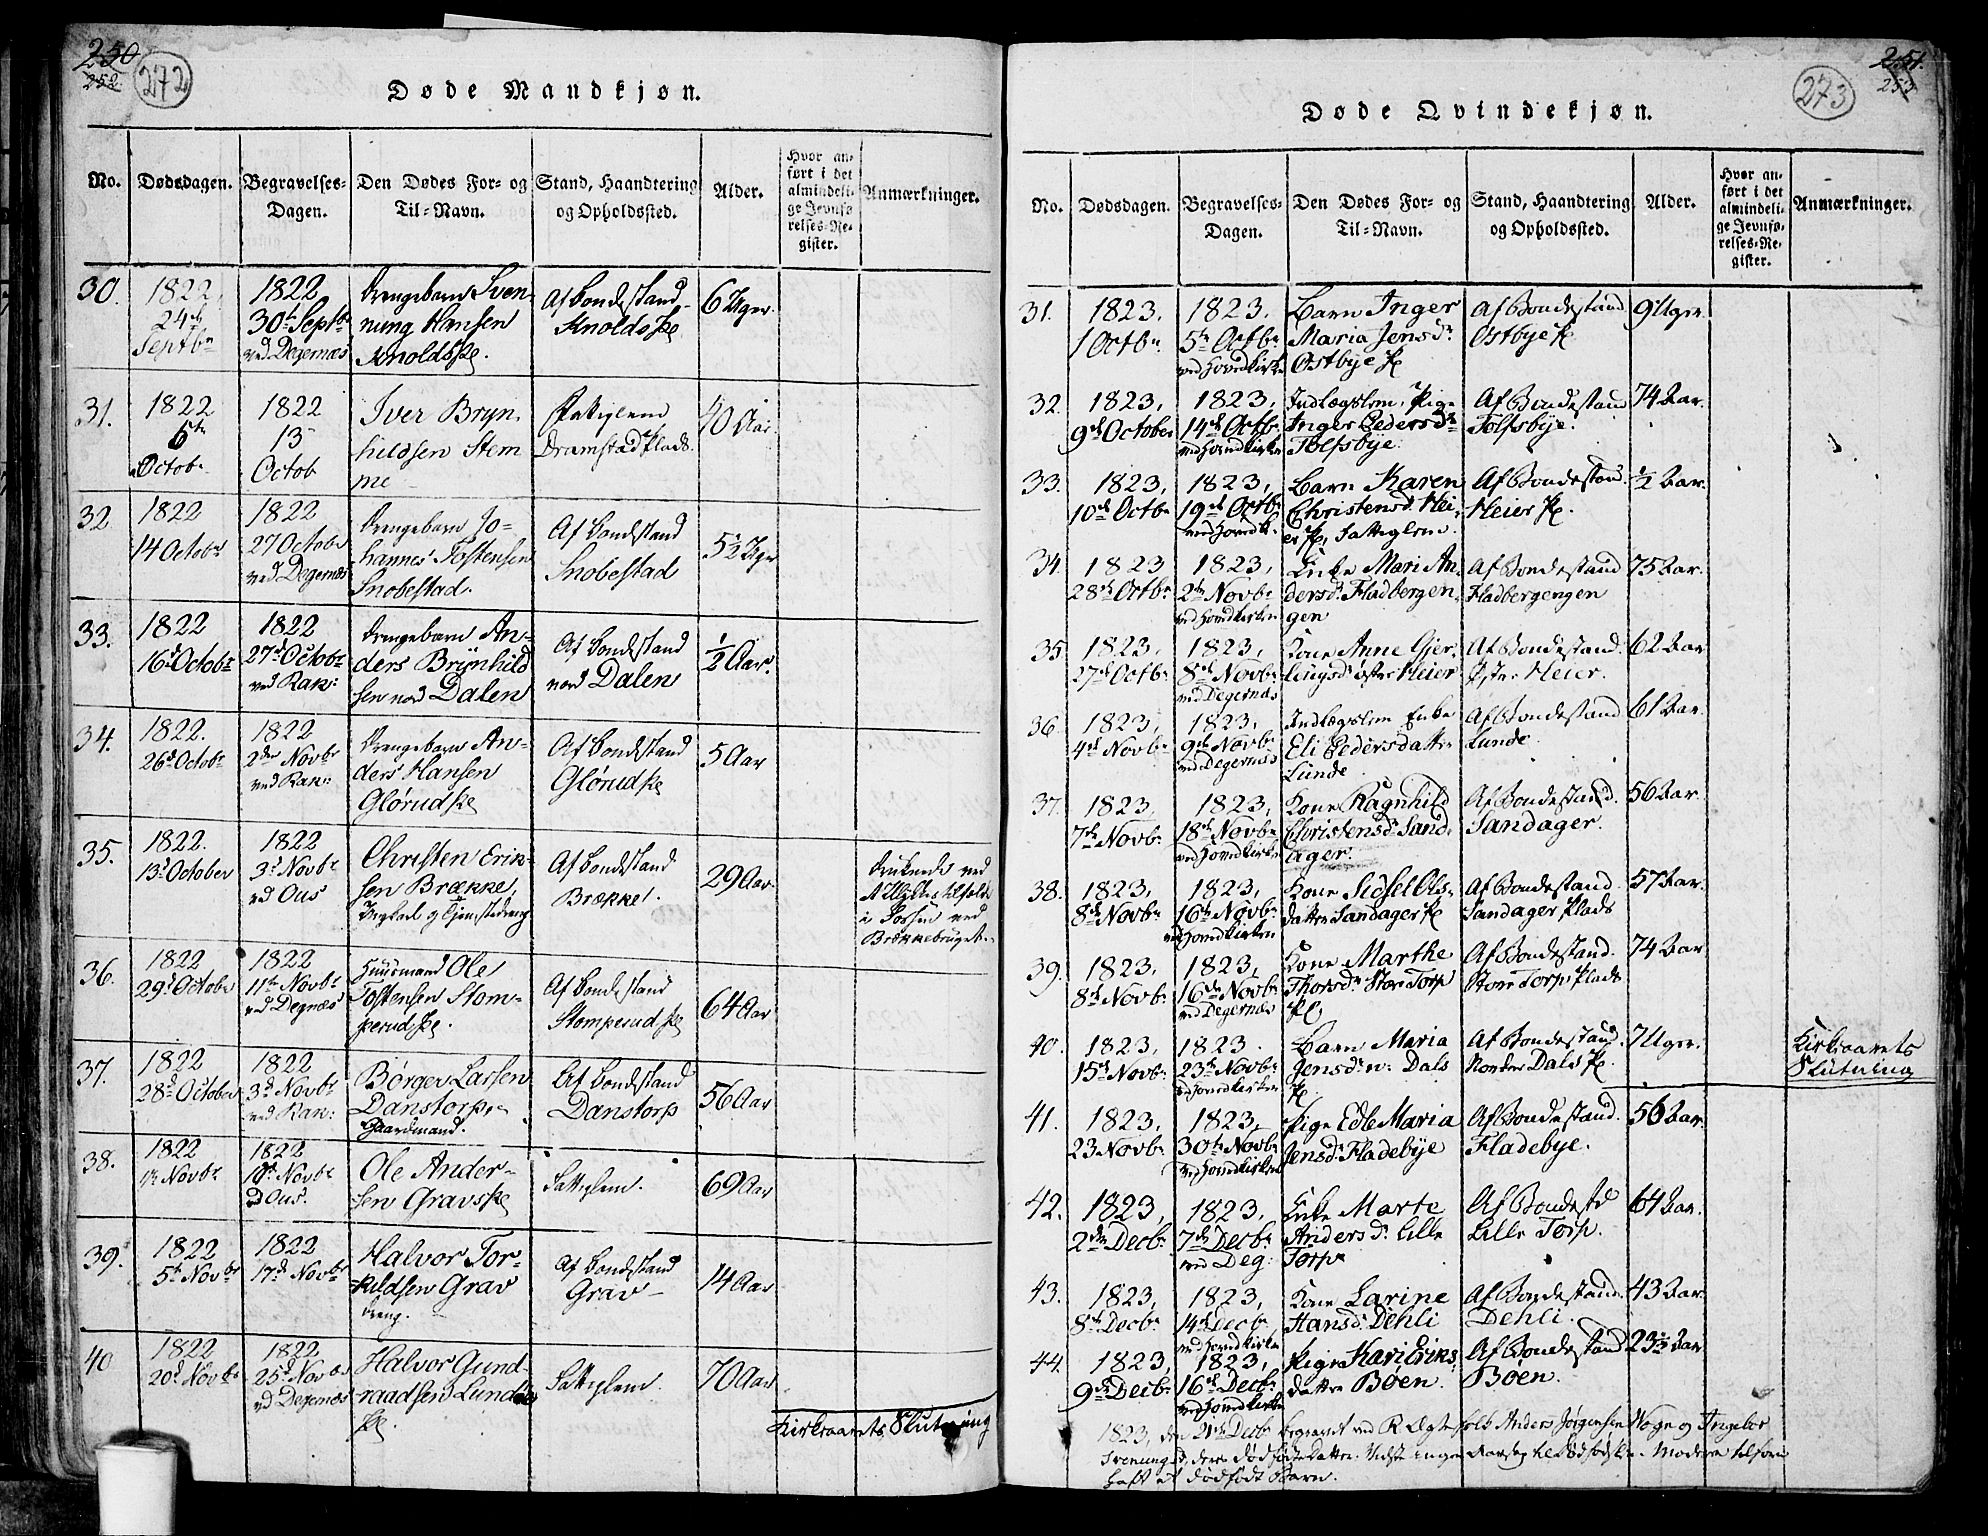 250
252
272
Døde Mandkjøn.
No.
Dødsdagen.
Begravelses-
Dagen.
Den Dødes For- og
Til-Navn.
Stand, Haandtering
og Opholdssted.
Alder.
Hvor an-
ført i det
almindeli-
ge Jevnfø-
relses-Re-
gister.
Anmærkninger.
30.
1822
24de
Septbr
1822
30te Septbr
ved Degernæs
Drengebarn Sven-
nung Hansen
Knoldsske.
Af Bondestand
Knoldsske
6 Uger
31.
1822
6te
Octobr
1822
13
Octob
Iver Bryn-
hildsen Stem
me
Fattiglem
Dramstad Plads
40 Aar
32
1822
14 Octobr
1822
27 Octobr
ved Degernæs
Drengebarn Jo-
hannes Tostensen
Snobestad.
Af Bondestand
Snobestad
5½ Uger
33.
1822
16de Octobr
1822
27de Octobr
ved Rak:
Drengebarn An-
ders Brynhild
sen nord Dalen
Af Bondestand
nord Dalen
½ Aar.
34.
1822.
26de Octobr
1822
2den Novbr
ved Rak:
Drengebarn An-
ders Hansen
Glørudske
Af Bondestand
Glørudske
5 Aar
35.
1822.
13de October
1822
3de Novbr
vd Ous
Christen Erik-
sen Brække,
Ungkarl og Tjenestedreng
Af Bondestand
Brække.
29 Aar
druknede ved
i Fossen ved
Brækkebruget.
36.
1822
29de Octobr
1822
11te Novbr
vd Degnæs
Huusmand Ole
Tostensen Stom-
perudske.
Af Bondestand
Stomperudske
64 Aar
37.
1822
28de October
1822
3de Novbr
vd Rak:
Børger Larsen
Danstorp
Gaardmand.
Af Bondestand
Danstorp
56 Aar
38.
1822
1te Novbr
1822
10de Novbr
vd Ous.
Ole Ander-
sen Gravske
Fattiglem.
69 Aar
39.
1822
5te Novbr
1822
17de Novbr
Halvor Tor-
kildsen Grav
dreng.
Af Bondestand
Grav
14 Aar
40
1822
20de Novbr
1822
25de Novbr
vd Degernæs
Halvor Gund
raadsen Lunde
ske.
Fattiglem.
70 Aar
Kirkeaarets Slutning
251.
253
273
Døde Qvindekjøn.
No.
Dødsdagen.
Begravelses-
Dagen.
Den Dødes For- og
Til-Navn.
Stand, Haandtering
og Opholdssted.
Alder.
Hvor an-
ført i det
almindeli-
ge Jevnfø-
relses-Re-
gister.
Anmærkninger.
31.
1823,
1 Octbr
1823.
5te Octbr
ved Hovedkirke
Barn Inger
Maria Jensdr
Østbye Pl
Af Bondestand
Østbye Pl
9 Uger.
32.
1823,
9de October
1823,
14de Octbr
ved Hovedkirken
Indlægslem, Pige
Inger Pedersdr
Tolfsbye.
Af Bondestand
Tolfsbye.
74 Aar.
33.
1823,
10de Octbr
1823,
19de Octbr
ved Hovedk.
Barn Karen
Christensd. Hei-
er Pl, Fattiglem.
Af Bondestand.
Heier Pl.
½ Aar.
34.
1823
28de Octbr
1823,
2den Novbr
ved Hovedkirken
Enke Mari An-
dersd. Fladbergen-
gen
Af Bondestand
Fladbergengen
75 Aar.
35
1823.
27de Octb
1823,
8de Novbr
ved Degernæs
Kone Anne Gjer-
lingsd. øster Heier
Af Bondestand.
Øster Heier.
62 Aar
36
1823,
4de Novbr
1823,
9de Novbr
ved Degernæs
Indlægslem Enke
Eli Pedersdatter
Lunde
Af Bondestand
Lunde
61 Aar.
37.
1823,
7de Novbr
1823,
18de Novbr
ved Hovedkirken
Kone Ragnhild
Christensdr Sand-
ager.
Af Bondestand.
Sandager.
56 Aar.
38.
1823,
8de Novbr
1823,
16de Novbr
ved Hovedkirken
Kone Sidsel Ols-
datter Sandager Pl
Af Bondestand.
Sandager Plads
57 Aar.
39.
1823,
8de Novbr
1823,
16de Novbr
ved Degernæs
Kone Marthe
Thorsdr Store Torp
Pl
Af Bondestand.
Store Torp Plads
74 Aar
40.
1823,
15de Novbr
1823.
23de Novbr
ved Hovedkirken
Barn Maria
Jensdr n: Dals
Pl
Af Bondestand.
Nordre Dals Pl.
7 Uger.
Kirkeaarets
Slutning
41.
1823,
23 Novbr
1823,
30te Novbr
ved Hovedkirken
Pige Edle Maria
Jensdr Fladebye
Af Bondestand.
Fladebye.
56 Aar
42.
1823,
2den Decbr
1823.
7de Decbr
ved Deg:
Enke Marte
Andersd. Lille
Torp
Af Bondestd
Lille Torp.
64 Aar.
43.
1823,
8de Decbr
1823,
14de Decbr
ved Hovedkirken
Kone Larine
Hansdr Dehli
Af Bondestand.
Dehli.
43 Aar.
44.
1823,
9de Decbr
1823,
16de Decbr
ved Hovedkirken
Pige Kari Eriks-
datter Bøen.
Af Bondestand
Bøen.
23½ Aar
1823, den 21de Decbr begravet ved R. Ægtefolk Anders Jørgensen Nøgne og Ingebor
Svenungsd. deres dødfødte Datter. Vidste ingen Aarsag til Dødfødselen. Moderen tilforn
haft et dødfødt Barn.